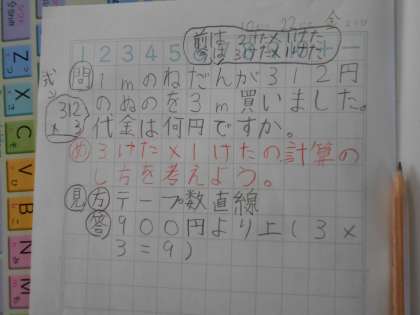 前は2けた×1けた
今は3けた×1けた
1 2 3 4 5 6
式
312
× 3
問 1mのねだんが312円
のぬのを3m買いました。
代金は何円ですか。
め 3けた×1けたの計算の
し方を考えよう。
見 方 テープ数直線
答 900円より上(3×
3=9)
Z
X
C
V
B
N
M